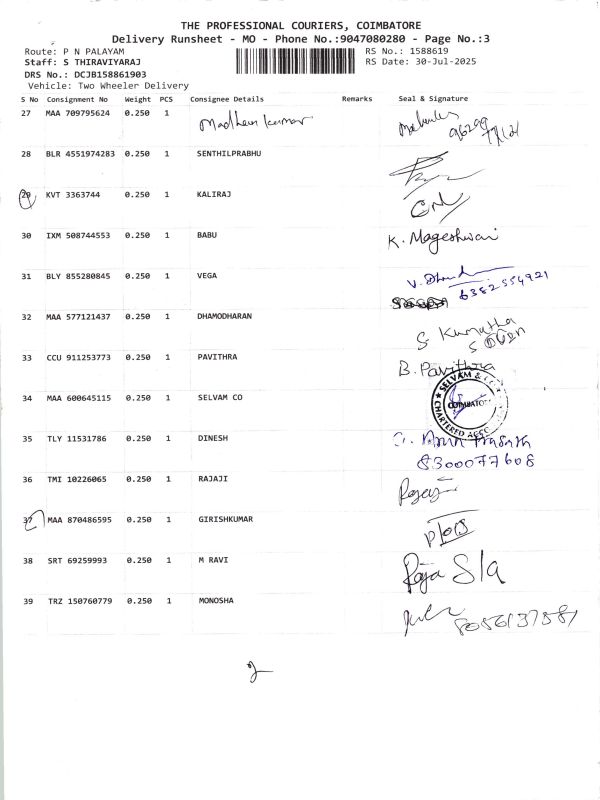 THE PROFESSIONAL COURIERS, COIMBATORE
Delivery Runsheet - MO - Phone No.:9047080280 - Page No.:3
Route: P N PALAYAM
RS No.: 1588619
Staff: S THIRAVIYARAJ
RS Date: 30-Jul-2025
DRS No.: DCJB158861903
Vehicle: Two Wheeler Delivery
S No Consignment No Weight PCS Consignee Details Remarks Seal & Signature
27 MAA 709795624 0.250 1 Madhan kumar
28 BLR 4551974283 0.250 1 SENTHILPRABHU
29 KVT 3363744 0.250 1 KALIRAJ
30 IXM 508744553 0.250 1 BABU K. Mageshwari
31 BLY 855280845 0.250 1 VEGA
6382554921
32 MAA 577121437 0.250 1 DHAMODHARAN
33 CCU 911253773 0.250 1 PAVITHRA B. Pavithra
34 MAA 600645115 0.250 1 SELVAM CO SELVAM & CO COIMBATORE CHARTERED
35 TLY 11531786 0.250 1 DINESH
8300077608
36 TMI 10226065 0.250 1 RAJAJI
37 MAA 870486595 0.250 1 GIRISHKUMAR
38 SRT 69259993 0.250 1 M RAVI Raja S/a
39 TRZ 150760779 0.250 1 MONOSHA